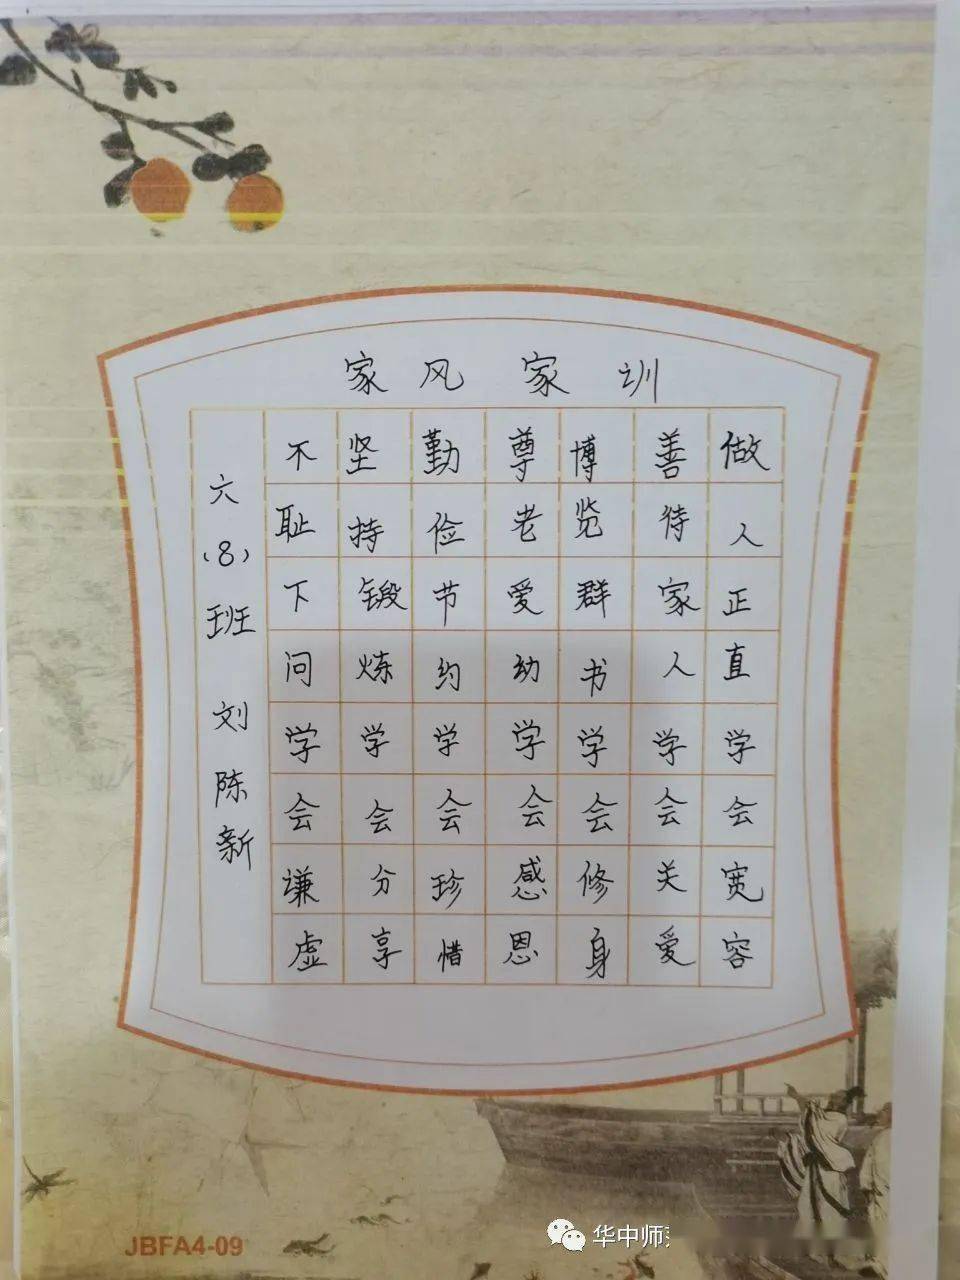 家风家训
做人正直学会宽容
善待家人学会关爱
博览群书学会修身
尊老爱幼学会感恩
勤俭节约学会珍惜
坚持锻炼学会分享
不耻下问学会谦虚
六(8)班 刘陈新
JBFA4-09
华中师